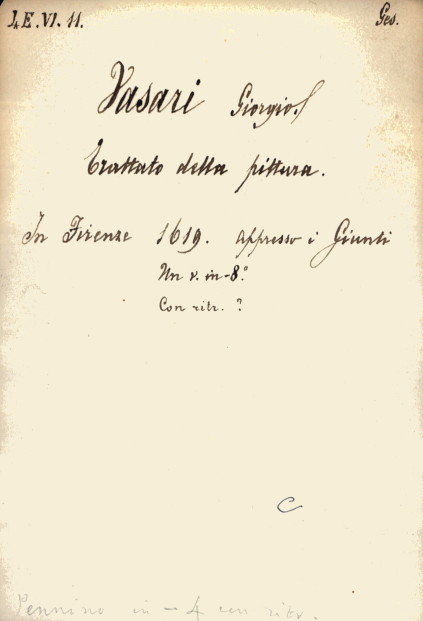 1,E.VI.11. Ges.
Vasari Giorgio.
Trattato della pittura.
In Firenze 1619. appresso i Giunti
Un v. in-8.º
Con ritr. ?
C
Pennino in - 4 con ritr.